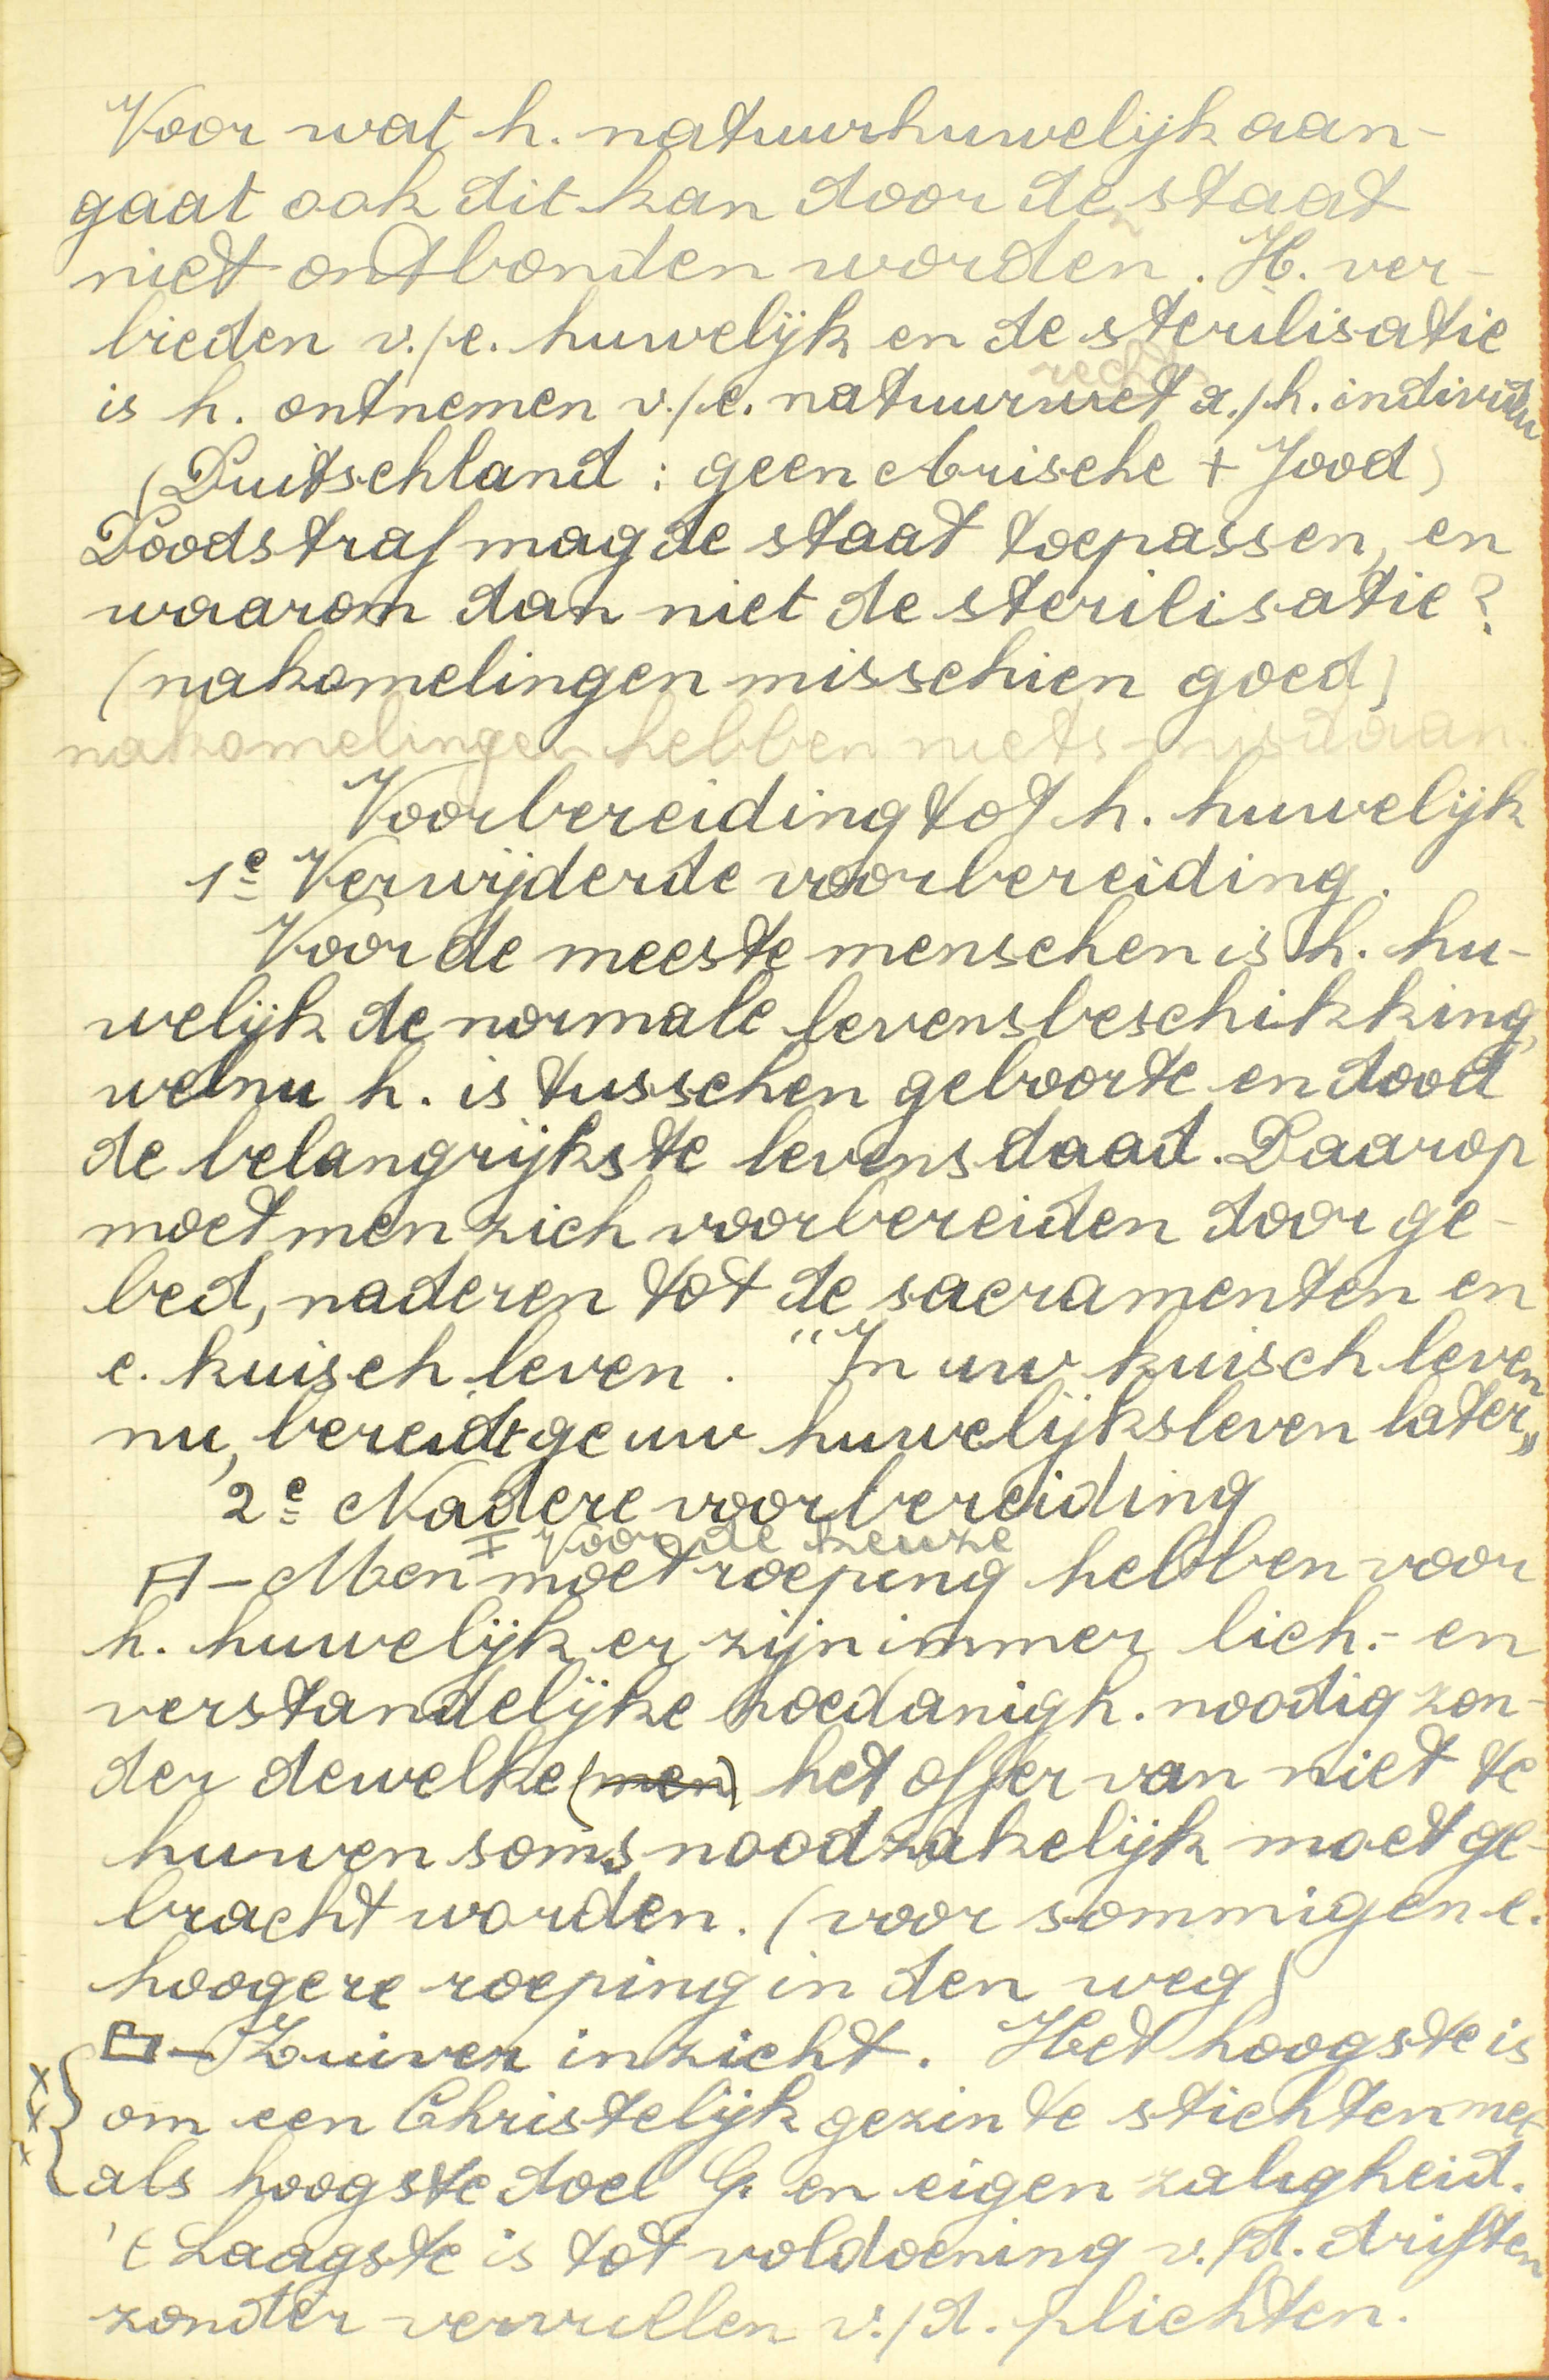 Voor wat h. natuurhuwelijk aan-
gaat ook dit kan door de staat
niet ontbonden worden. H. ver-
bieden v./e. huwelijk en de sterilisatie
recht
is h. ontnemen v./e. natuurwet a./h. individu
(Duitschland : geen Arische + Jood)
Doodstraf mag de staat toepassen, en
waarom dan niet de sterilisatie?
(nakomelingen misschien goed)
nakomelingen hebben niets misdaan.
Voorbereiding tot h. huwelijk
1e Verwijderde voorbereiding.
Voor de meeste menschen is h. hu-
welijk de normale levensbeschikking,
welnu h. is tusschen geboorte en dood
de belangrijkste levensdaad. Daarop
moet men zich voorbereiden door ge-
bed, naderen tot de sacramenten en
e. kuisch leven. "In uw kuisch leven
nu, bereidt ge uw huwelijksleven later"
2e Nadere voorbereiding
I Voor de keuze
A - Men moet roeping hebben voor
h. huwelijk er zijn immer lich.- en
verstandelijke hoedanigh. noodig zon-
der dewelke (men) het offer van niet te
huwen soms noodzakelijk moet ge-
bracht worden. (voor sommigen e.
hoogere roeping in den weg)
- Zuiver inzicht. Het hoogste is
om een Christelijk gezin te stichten met
als hoogste doel G. en eigen zaligheid.
't Laagste is tot voldoening v./d. driften
zonder vervullen v./d. plichten.